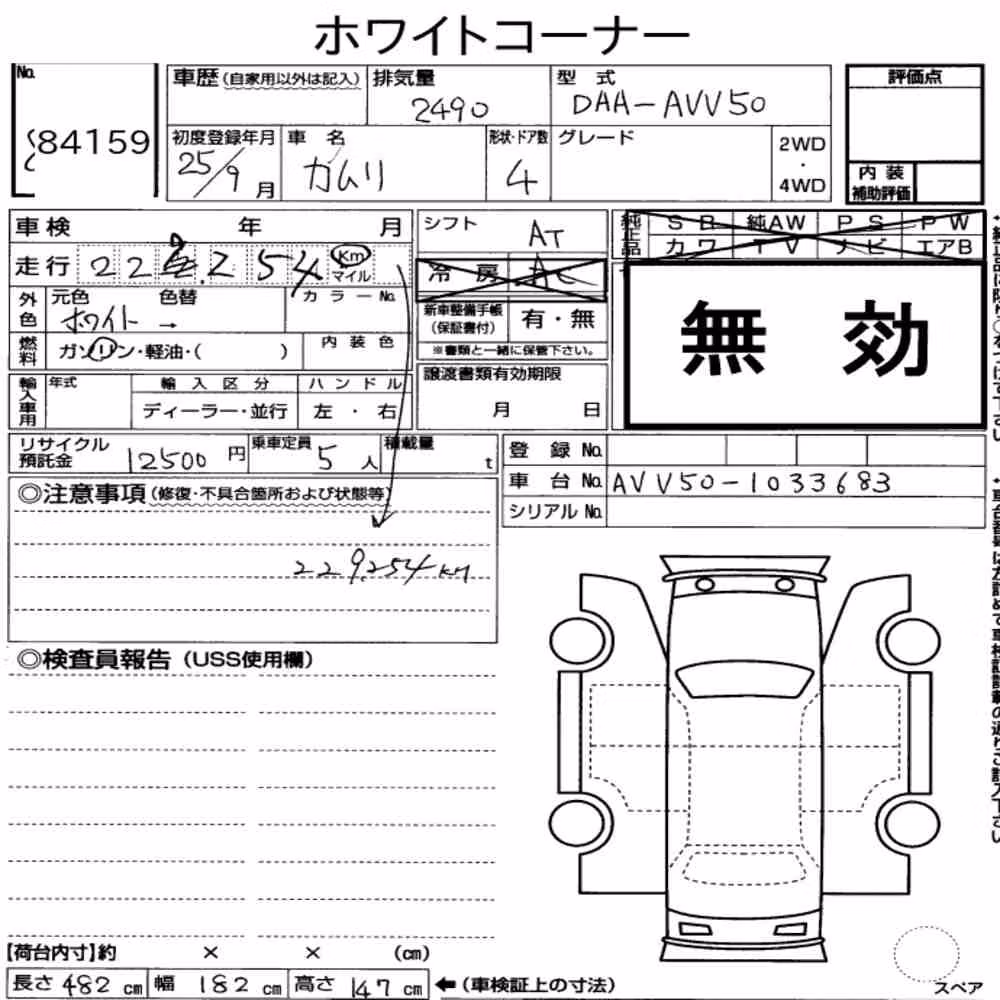 ホワイトコーナー
No.
84159
車歴 (自家用以外は記入)
排気量
2490
型 式
DAA-AVV50
初度登録年月
25/9 月
車 名
カムリ
形状・ドア数
4
グレード
2WD
・
4WD
評価点
内 装
補助評価
車検 年 月
走行 229,254 Km マイル
シフト
AT
冷 房 AC
純正品
SR 純AW PS PW
カワ TV ナビ エアB
外色
元色 色替
ホワイト →
カラーNo.
燃料
ガソリン・軽油・( )
内 装 色
新車整備手帳
(保証書付)
有・無
※書類と一緒に保管下さい。
無 効
輸入車用
年式
輸 入 区 分
ハ ン ド ル
ディーラー・並行
左 ・ 右
譲渡書類有効期限
月 日
リサイクル
預託金
12500 円
乗車定員
5 人
積載量
t
登 録 No.
車 台 No. AVV50-1033683
シリアル No.
◎注意事項 (修復・不具合箇所および状態等)
229,254 km
◎検査員報告 (USS使用欄)
【荷台内寸】約 × × (cm)
長さ 482 cm 幅 182 cm 高さ 147 cm ←(車検証上の寸法)
スペア